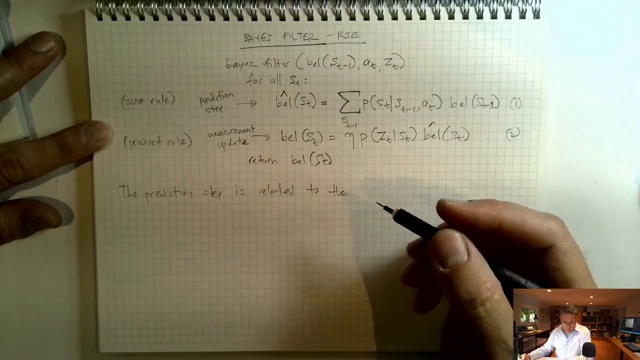 BAYES FILTER - RSE
bayes-filter (bel(S_{t-1}), a_t, Z_t)
for all S_t:
(sum rule) prediction step → b̂el(S_t) = ∑_{S_{t-1}} p(S_t|S_{t-1}, a_t) bel(S_{t-1}) (1)
(product rule) measurement update → bel(S_t) = η p(Z_t|S_t) b̂el(S_t) (2)
return bel(S_t)
The prediction step is related to the